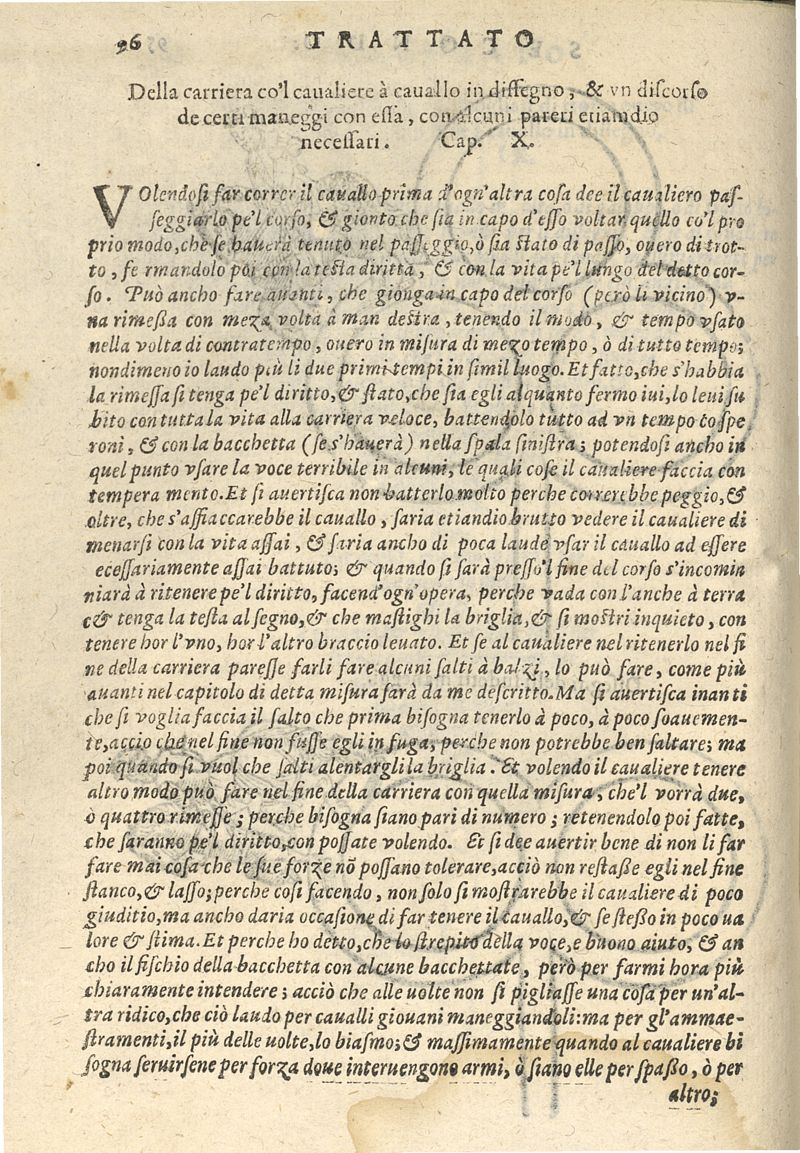 96 TRATTATO
Della carriera co'l caualiere à cauallo in dissegno, & vn discorso
de certi maneggi con essa, con alcuni pareri etiamdio
necessari. Cap. X.
VOlendosi far correr il cauallo prima d'ogn'altra cosa dee il caualiero pas-
seggiarlo pe'l corso, & gionto che sia in capo d'esso voltar quello co'l pro
prio modo, chè se hauerà tenuto nel passeggio, ò sia stato di passo, ouero di trot-
to, fe rmandolo poi con la testa diritta, & con la vita pe'l lungo del detto cor-
so. Può ancho fare auanti, che gionga in capo del corso (però lì vicino) v-
na rimessa con meza volta à man destra, tenendo il modo, & tempo vsato
nella volta di contratempo, ouero in misura di mezo tempo, ò di tutto tempo;
nondimeno io laudo più li due primi tempi in simil luogo. Et fatto, che s'habbia
la rimessa si tenga pe'l diritto, & stato, che sia egli alquanto fermo iui, lo leui su
bito con tutta la vita alla carriera veloce, battendolo tutto ad vn tempo co spe
roni, & con la bacchetta (se s'hauerà) nella spala sinistra; potendosi ancho in
quel punto vsare la voce terribile in alcuni, le quali cose il caualiere faccia con
tempera mento. Et si auertisca non batterlo molto perche correrebbe peggio, &
oltre, che s'affiaccarebbe il cauallo, saria etiandio brutto vedere il caualiere di
menarsi con la vita assai, & saria ancho di poca laude vsar il cauallo ad essere
ecessariamente assai battuto; & quando si sarà presso'l fine del corso s'incomin
niarà à ritenere pe'l diritto, facend'ogn'opera, perche vada con l'anche à terra
c& tenga la testa al segno, & che mastighi la briglia, & si mostri inquieto, con
tenere hor l'vno, hor l'altro braccio leuato. Et se al caualiere nel ritenerlo nel fi
ne della carriera paresse farli fare alcuni salti à balzi, lo può fare, come più
auanti nel capitolo di detta misura sarà da me descritto. Ma si auertisca inanti
che si voglia faccia il salto che prima bisogna tenerlo à poco, à poco soauemen-
te, accio che nel fine non fusse egli in fuga, perche non potrebbe ben saltare; ma
poi quando si vuol che salti alentargli la briglia. Et volendo il caualiere tenere
altro modo può fare nel fine della carriera con quella misura, che'l vorrà due,
ò quattro rimesse; perche bisogna siano pari di numero; retenendolo poi fatte,
che saranno pe'l diritto, con possate volendo. Et si dee auertir bene di non li far
fare mai cosa che le sue forze nō possano tolerare, acciò non restasse egli nel fine
stanco, & lasso; perche cosi facendo, non solo si mostrarebbe il caualiere di poco
giuditio, ma ancho daria occasione di far tenere il cauallo, & se stesso in poco ua
lore & stima. Et perche ho detto, che lo strepito della voce, e buono aiuto, & an
cho il fischio della bacchetta con alcune bacchettate, però per farmi hora più
chiaramente intendere; acciò che alle uolte non si pigliasse una cosa per un'al-
tra ridico, che ciò laudo per caualli giouani maneggiandoli: ma per gl'ammae-
stramenti, il più delle uolte, lo biasmo; & massimamente quando al caualiere bi
sogna seruirsene per forza doue interuengono armi, ò siano elle per spasso, ò per
altro;